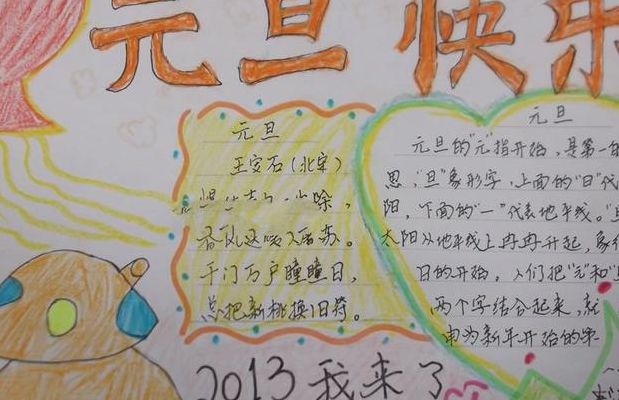 元旦快乐
元旦
王安石(北宋)
除,
春风送暖入屠苏。
千门万户曈曈日,
总把新桃换旧符。
元旦
元旦的"元"指开始,是第一的
思,"旦"象形字,上面的"日"代
阳,下面的"一"代表地平线。"
太阳从地平线上冉冉升起,象
日的开始。人们把"元"和"
两个字结合起来,就
申为新年开始的第
2013我来了